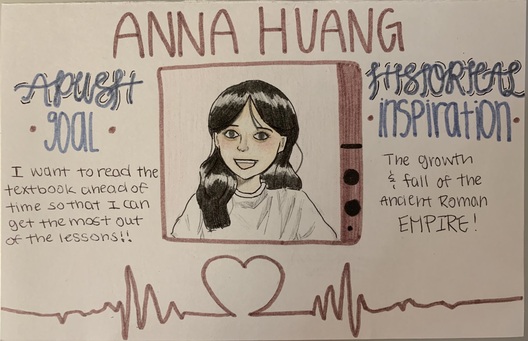 ANNA HUANG
APUSH
goal
I want to read the
textbook ahead of
time so that I can
get the most out
of the lessons!!
HISTORICAL
inspiration
The growth
& fall of the
Ancient Roman
EMPIRE!